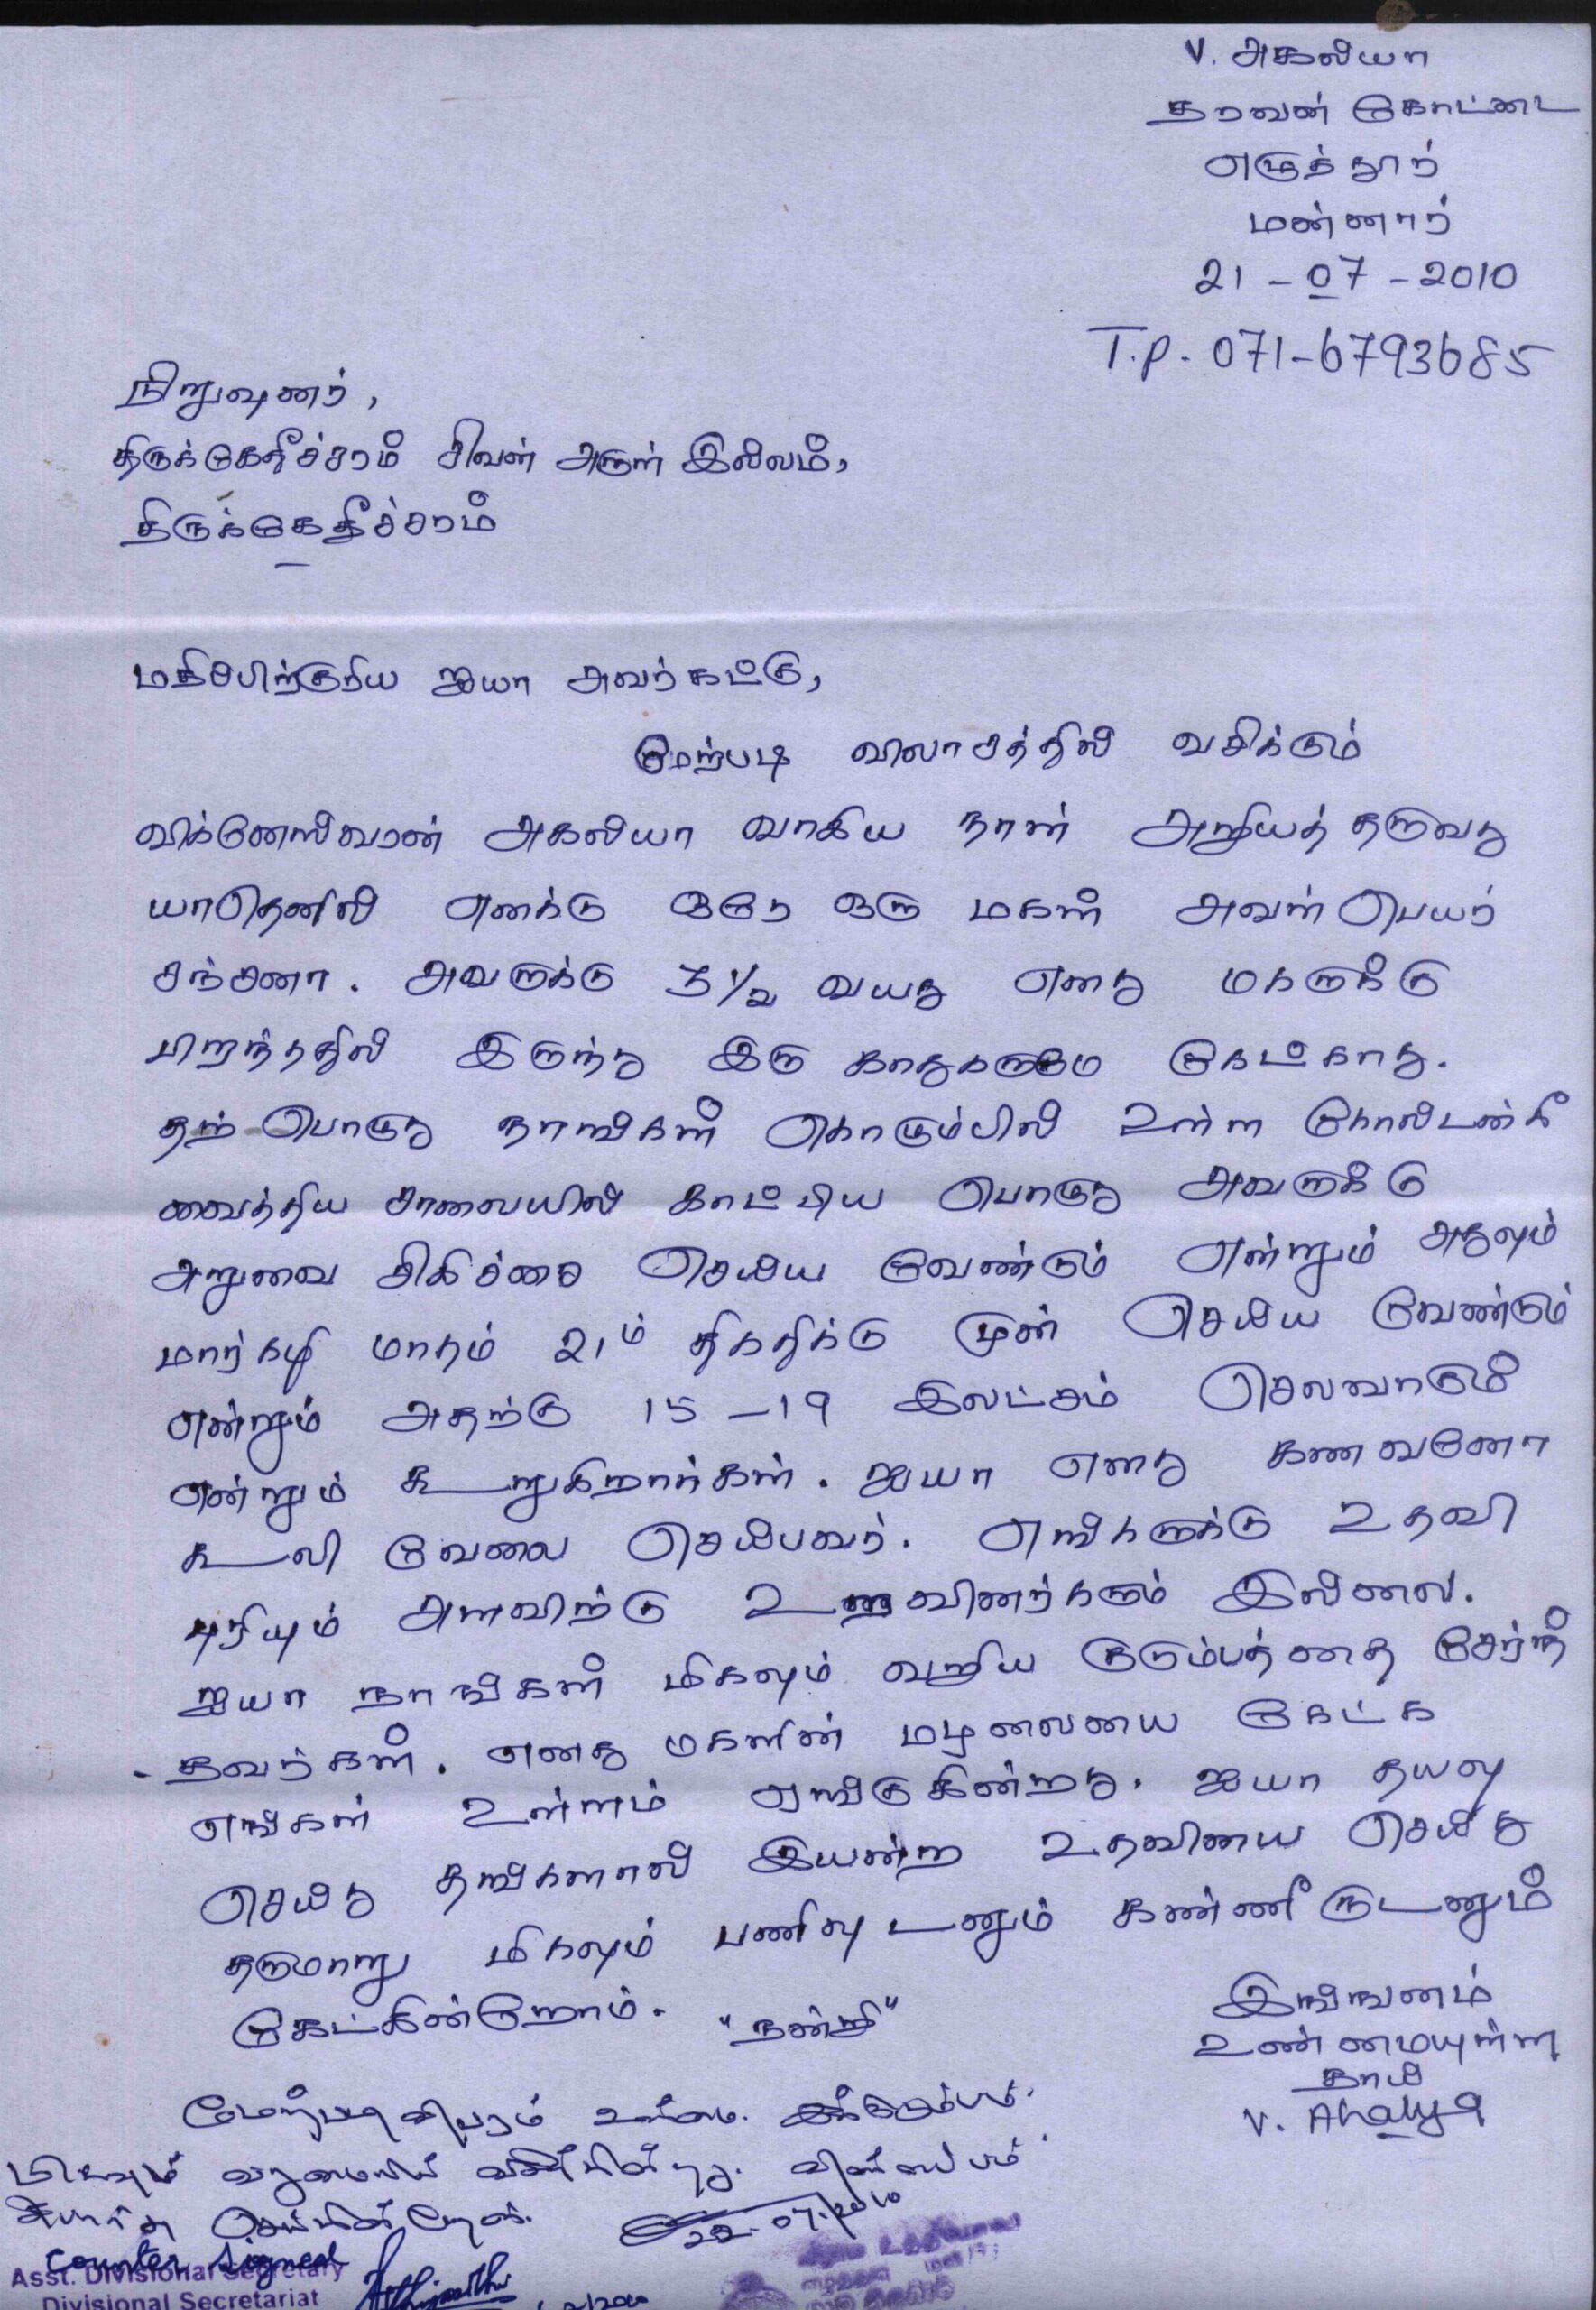 V. அகலியா
தாவன் கோட்டை
எழுத்தூர்
மன்னார்
21 - 07 - 2010
T.P. 071-6793685
நிறுவுனர்,
திருக்கேதீச்சரம் சிவன் அருள் இல்லம்,
திருக்கேதீச்சரம்
மதிப்பிற்குரிய ஐயா அவர்கட்கு,
மேற்படி விலாசத்தில் வசிக்கும்
விக்னேஸ்வரன் அகலியா வாகிய நான் அறியத் தருவது
யாதெனில் எனக்கு ஒரே ஒரு மகள் அவள் பெயர்
சந்சனா. அவளுக்கு 3½ வயது எனது மகளுக்கு
பிறந்ததில் இருந்து இரு காதுகளுமே கேட்காது.
தற் பொழுது நாங்கள் கொழும்பில் உள்ள கோல்டன்கீ
வைத்திய சாலையில் காட்டிய பொழுது அவளுக்கு
அறுவை சிகிச்சை செய்ய வேண்டும் என்றும் அதுவும்
மார்கழி மாதம் 21ம் திகதிக்கு முன் செய்ய வேண்டும்
என்றும் அதற்கு 15 - 19 இலட்சம் செலவாகும்
என்றும் கூறுகிறார்கள். ஐயா எனது கணவனோ
கூலி வேலை செய்பவர். எங்களுக்கு உதவி
புரியும் அளவிற்கு உறவினர்களும் இல்லை.
ஐயா நாங்கள் மிகவும் வறிய குடும்பத்தை சேர்ந்
- தவர்கள். எனது மகளின் மழலையை கேட்க
எங்கள் உள்ளம் ஏங்குகின்றது. ஐயா தயவு
செய்து தங்களால் இயன்ற உதவியை செய்து
தருமாறு மிகவும் பணிவுடனும் கண்ணீருடனும்
கேட்கின்றோம். "நன்றி"
இங்ஙனம்
உண்மையுள்ள
தாய்
V. Ahalya
மேற்படி விபரம் உண்மை. இக்குடும்பம்
மிகவும் வறுமையில் வசிக்கின்றது. விண்ணப்பம்
சிபார்சு செய்கின்றேன்.
22-07-2010
counter signed
Asst. Divisional Secretary
Divisional Secretariat